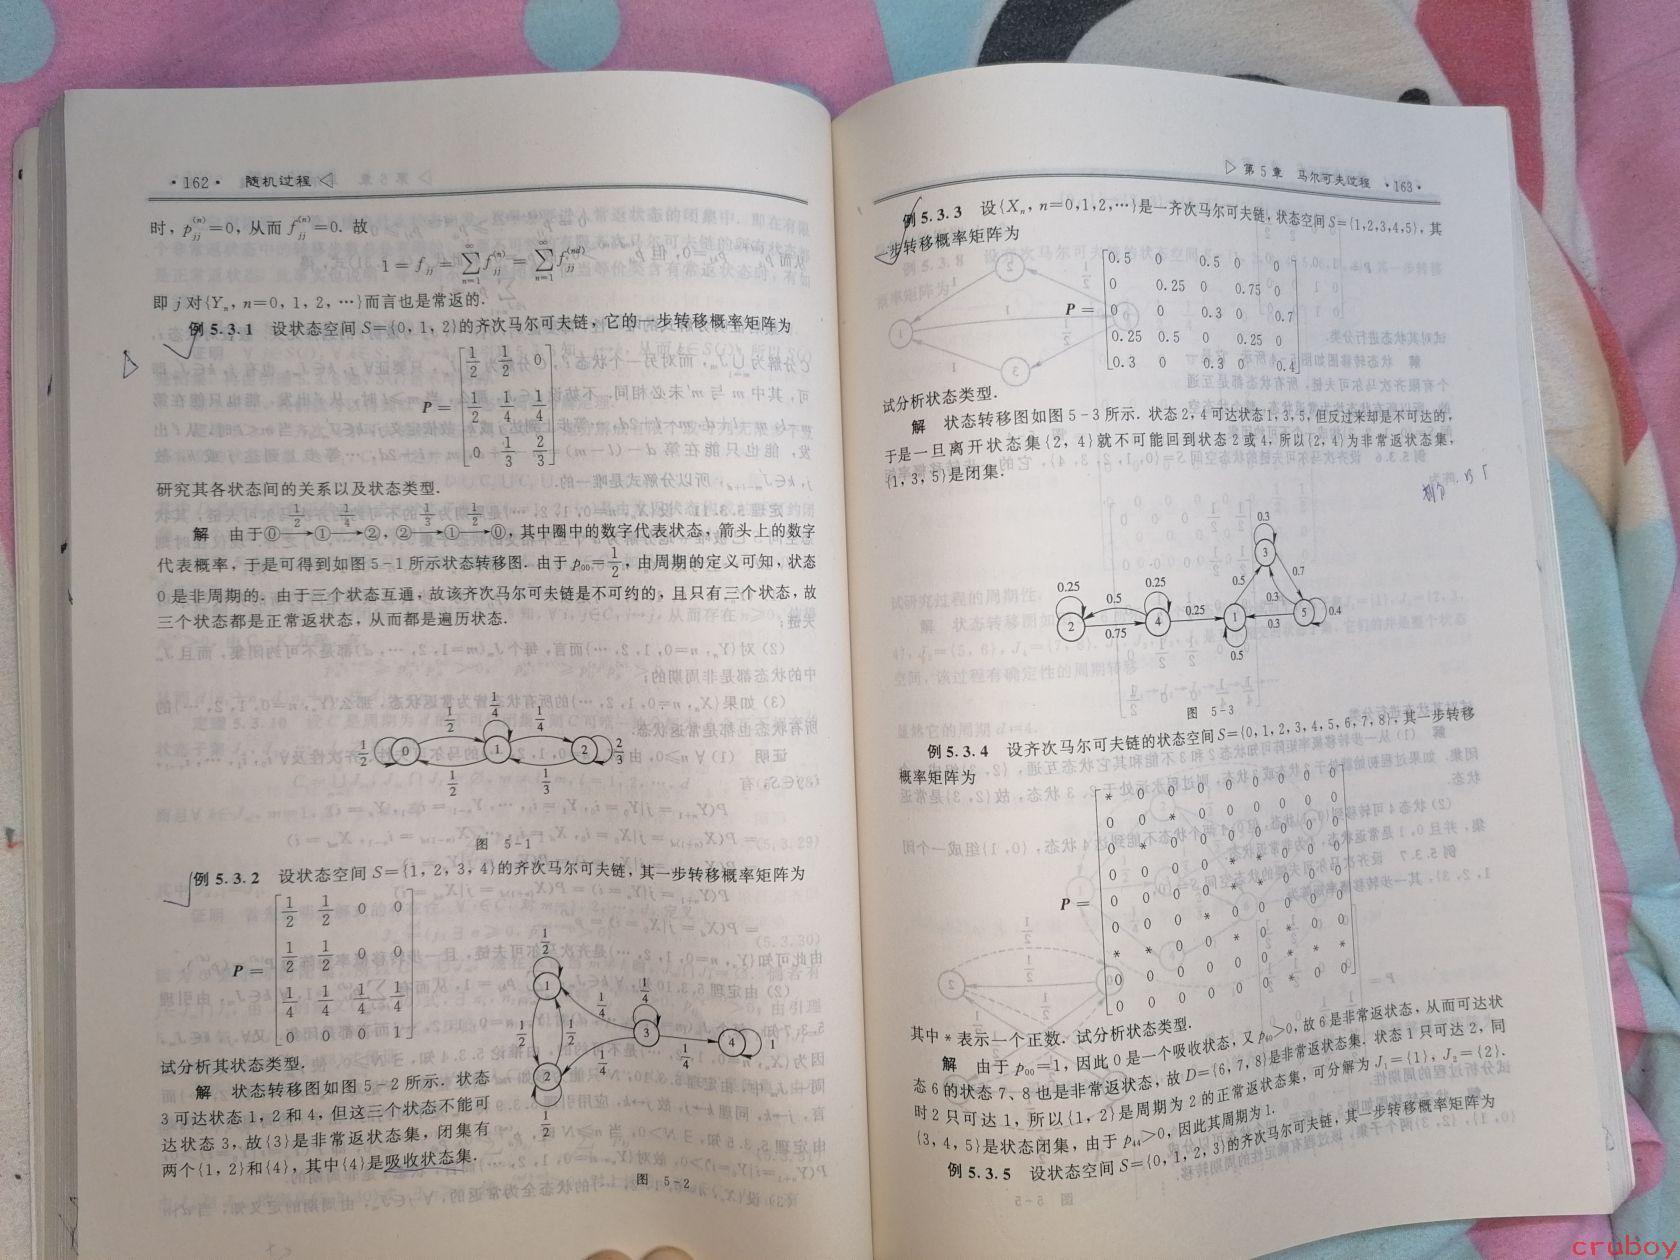 ·162· 随机过程 ◁
时, p_{jj}^{(n)}=0, 从而 f_{jj}^{(n)}=0. 故
1=f_{jj}=\sum_{n=1}^{\infty} f_{jj}^{(n)}=\sum_{n=1}^{\infty} f_{jj}^{(nd)}
即 j 对{Y_n, n=0, 1, 2, …}而言也是常返的.
例 5.3.1 设状态空间 S={0, 1, 2}的齐次马尔可夫链, 它的一步转移概率矩阵为
1/2 1/2 0
P = 1/2 1/4 1/4
0 1/3 2/3
研究其各状态间的关系以及状态类型.
解 由于⓪ 1/2→① 1/4→②, ② 1/3→① 1/2→⓪, 其中圈中的数字代表状态, 箭头上的数字
代表概率, 于是可得到如图 5-1所示状态转移图. 由于 p_{00}=1/2, 由周期的定义可知, 状态
0 是非周期的. 由于三个状态互通, 故该齐次马尔可夫链是不可约的, 且只有三个状态, 故
三个状态都是正常返状态, 从而都是遍历状态.
1/4
1/2 1/4
1/2 0 1 2 2/3
1/2 1/3
图 5-1
例 5.3.2 设状态空间 S={1, 2, 3, 4}的齐次马尔可夫链, 其一步转移概率矩阵为
1/2 1/2 0 0
P = 1/2 1/2 0 0
1/4 1/4 1/4 1/4
0 0 0 1
试分析其状态类型.
解 状态转移图如图 5-2 所示. 状态
3 可达状态 1, 2 和 4, 但这三个状态不能可
达状态 3, 故{3}是非常返状态集, 闭集有
两个{1, 2}和{4}, 其中{4}是吸收状态集.
1/2
1 1/4 1/4
1/2 1/2 3 4 1
1/4 1/4
2
1/2
图 5-2
▷ 第 5 章 马尔可夫过程 ·163·
例 5.3.3 设{X_n, n=0,1,2,…}是一齐次马尔可夫链, 状态空间 S={1,2,3,4,5}, 其
一步转移概率矩阵为
0.5 0 0.5 0 0
0 0.25 0 0.75 0
P = 0 0 0.3 0 0.7
0.25 0.5 0 0.25 0
0.3 0 0.3 0 0.4
试分析状态类型.
解 状态转移图如图 5-3 所示. 状态 2, 4 可达状态 1, 3, 5, 但反过来却是不可达的,
于是一旦离开状态集{2, 4}就不可能回到状态 2 或 4, 所以{2, 4}为非常返状态集,
{1, 3, 5}是闭集.
0.3
3
0.25 0.25 0.5 0.7
0.5 0.3
2 4 0.25 1 5 0.4
0.75 0.3
0.5
图 5-3
例 5.3.4 设齐次马尔可夫链的状态空间 S={0,1,2,3,4,5,6,7,8}, 其一步转移
概率矩阵为
* 0 0 0 0 0 0 0 0
P =
其中 * 表示一个正数. 试分析状态类型.
解 由于 p_{00}=1, 因此 0 是一个吸收状态, 又 p_{60}>0, 故 6 是非常返状态, 从而可达状
态 6 的状态 7、8 也是非常返状态, 故 D={6, 7, 8}是非常返状态集. 状态 1 只可达 2, 同
时 2 只可达 1, 所以{1, 2}是周期为 2 的正常返状态集, 可分解为 J_1={1}, J_2={2}.
{3, 4, 5}是状态闭集, 由于 p_{44}>0, 因此其周期为 1.
例 5.3.5 设状态空间 S={0, 1, 2, 3}的齐次马尔可夫链, 其一步转移概率矩阵为
cruboy